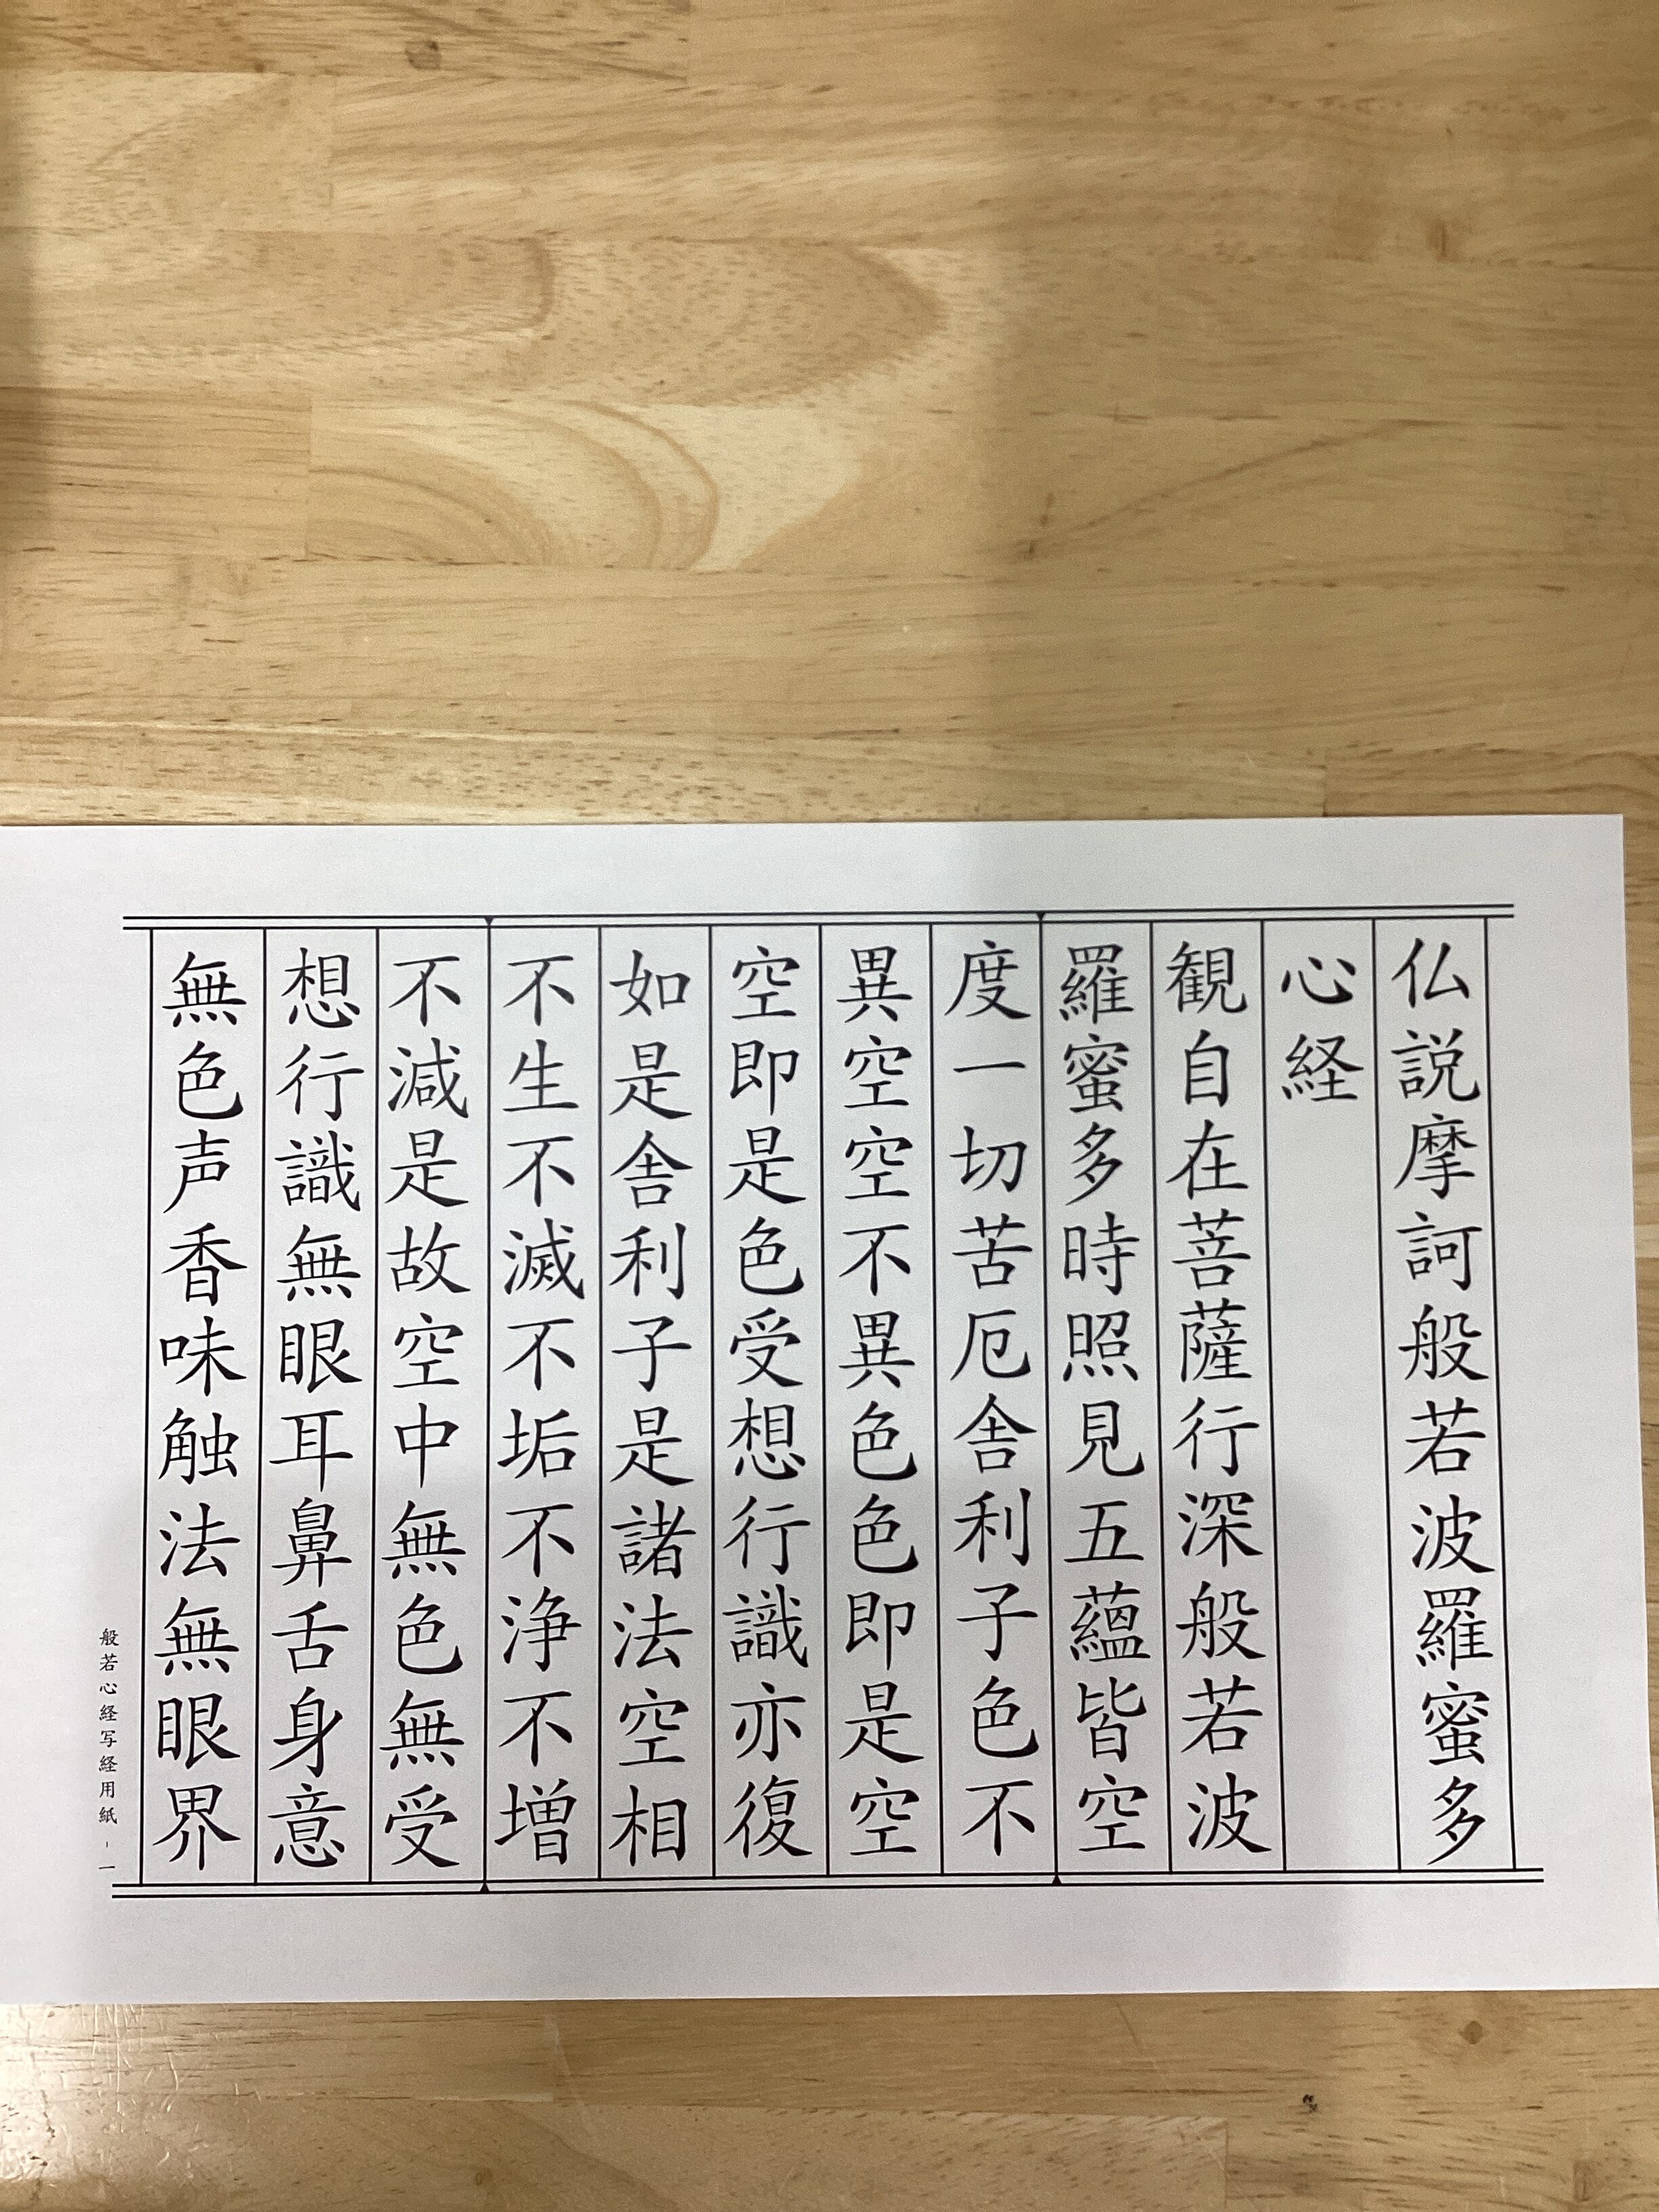 仏説摩訶般若波羅蜜多
心経
観自在菩薩行深般若波
羅蜜多時照見五蘊皆空
度一切苦厄舎利子色不
異空空不異色色即是空
空即是色受想行識亦復
如是舎利子是諸法空相
不生不滅不垢不浄不増
不減是故空中無色無受
想行識無眼耳鼻舌身意
無色声香味触法無眼界
般若心経写経用紙-一